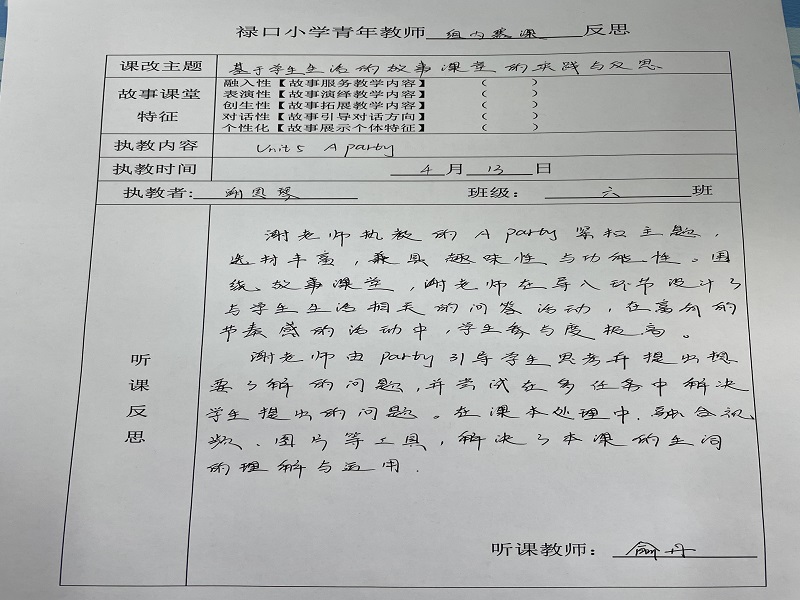 禄口小学青年教师 组内磨课 反思
课改主题 基于学生生活的故事课堂的实践与反思
故事课堂特征
融入性【故事服务教学内容】 ( )
表演性【故事演绎教学内容】 ( )
创生性【故事拓展教学内容】 ( )
对话性【故事引导对话方向】 ( )
个性化【故事展示个体特征】 ( )
执教内容 Unit 5 A party
执教时间 4 月 13 日
执教者: 谢 琴 班级: 六 班
听课反思
谢老师执教的 A party 紧扣主题,
选材丰富,兼具趣味性与功能性。围
绕故事课堂,谢老师在导入环节设计了
与学生生活相关的问答活动,在高分的
节奏感的活动中,学生参与度极高。
谢老师由 party 引导学生思考并提出想
要了解的问题,并尝试在各任务中解决
学生提出的问题。在课本处理中,融合视
频、图片等工具,解决了本课的生词
的理解与运用.
听课教师: 俞丹